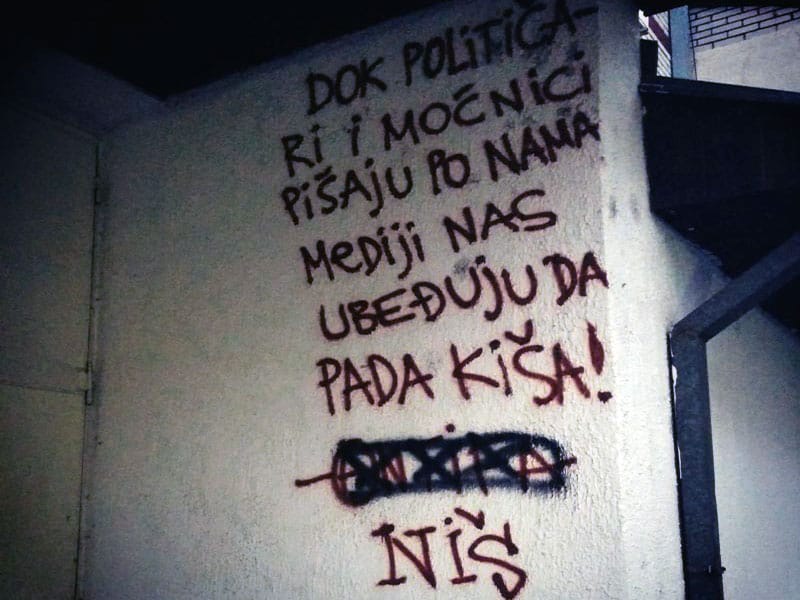 DOK POLITIČA-
RI I MOĆNICI
PIŠAJU PO NAMA
MEDIJI NAS
UBEĐUJU DA
PADA KIŠA!
NIŠ